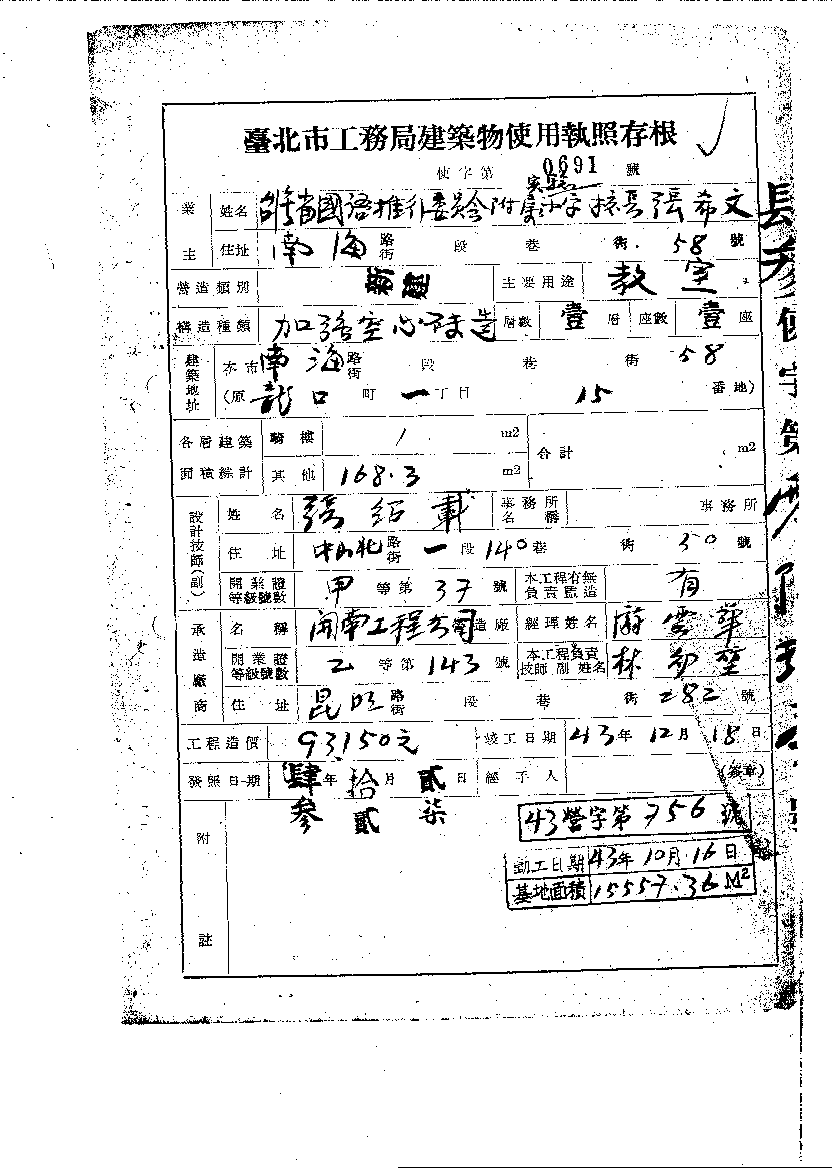 臺北市工務局建築物使用執照存根
使字第 0691 號
實驗
業主 姓名 省國語推行委員會附屬小學校長張希文
住址 南海 路街 段 巷 街 58 號
營造類別 新建 主要用途 教室
構造種類 加強空心磚造 層數 壹 層 座數 壹 座
建築地址 本市 南海 路街 段 巷 街 58
(原 龍口 町 一 丁目 15 番地)
各層建築面積總計 騎樓 / m2 合計 m2
其他 168.3 m2
設計技師(副) 姓名 張紹載 事務所名稱 事務所
住址 中山北 路街 一 段 140 巷 街 50 號
開業證等級號數 甲 等第 37 號 本工程有無負責監造 有
承造廠商 名稱 開南工程公司 造廠 經理姓名 麻雲
開業證等級號數 乙 等第 143 號 本工程負責技師副姓名 林
住址 昆明 路街 段 巷 街 282 號
工程造價 93,150元 竣工日期 43年12月18日
發照日期 肆參 年 拾貳 月 貳柒 日 經手人 (簽章)
附註
43營字第756號
動工日期 43年10月16日
基地面積 15557.36 M²
使字第